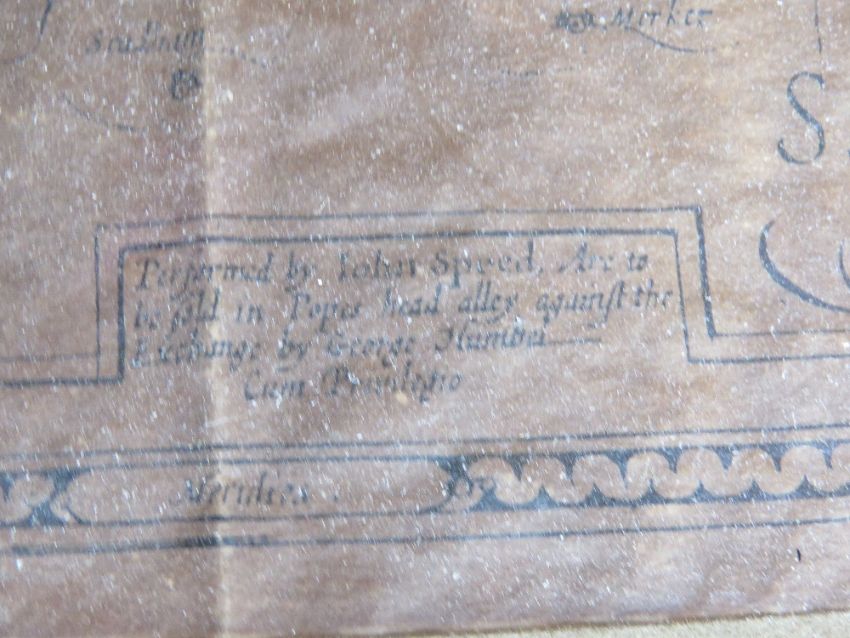 Merket
S
Performed by Iohn Speed, Are to
be ſold in Popes head alley againſt the
Exchange by George Humbel
Cum Privilegio
Meridies